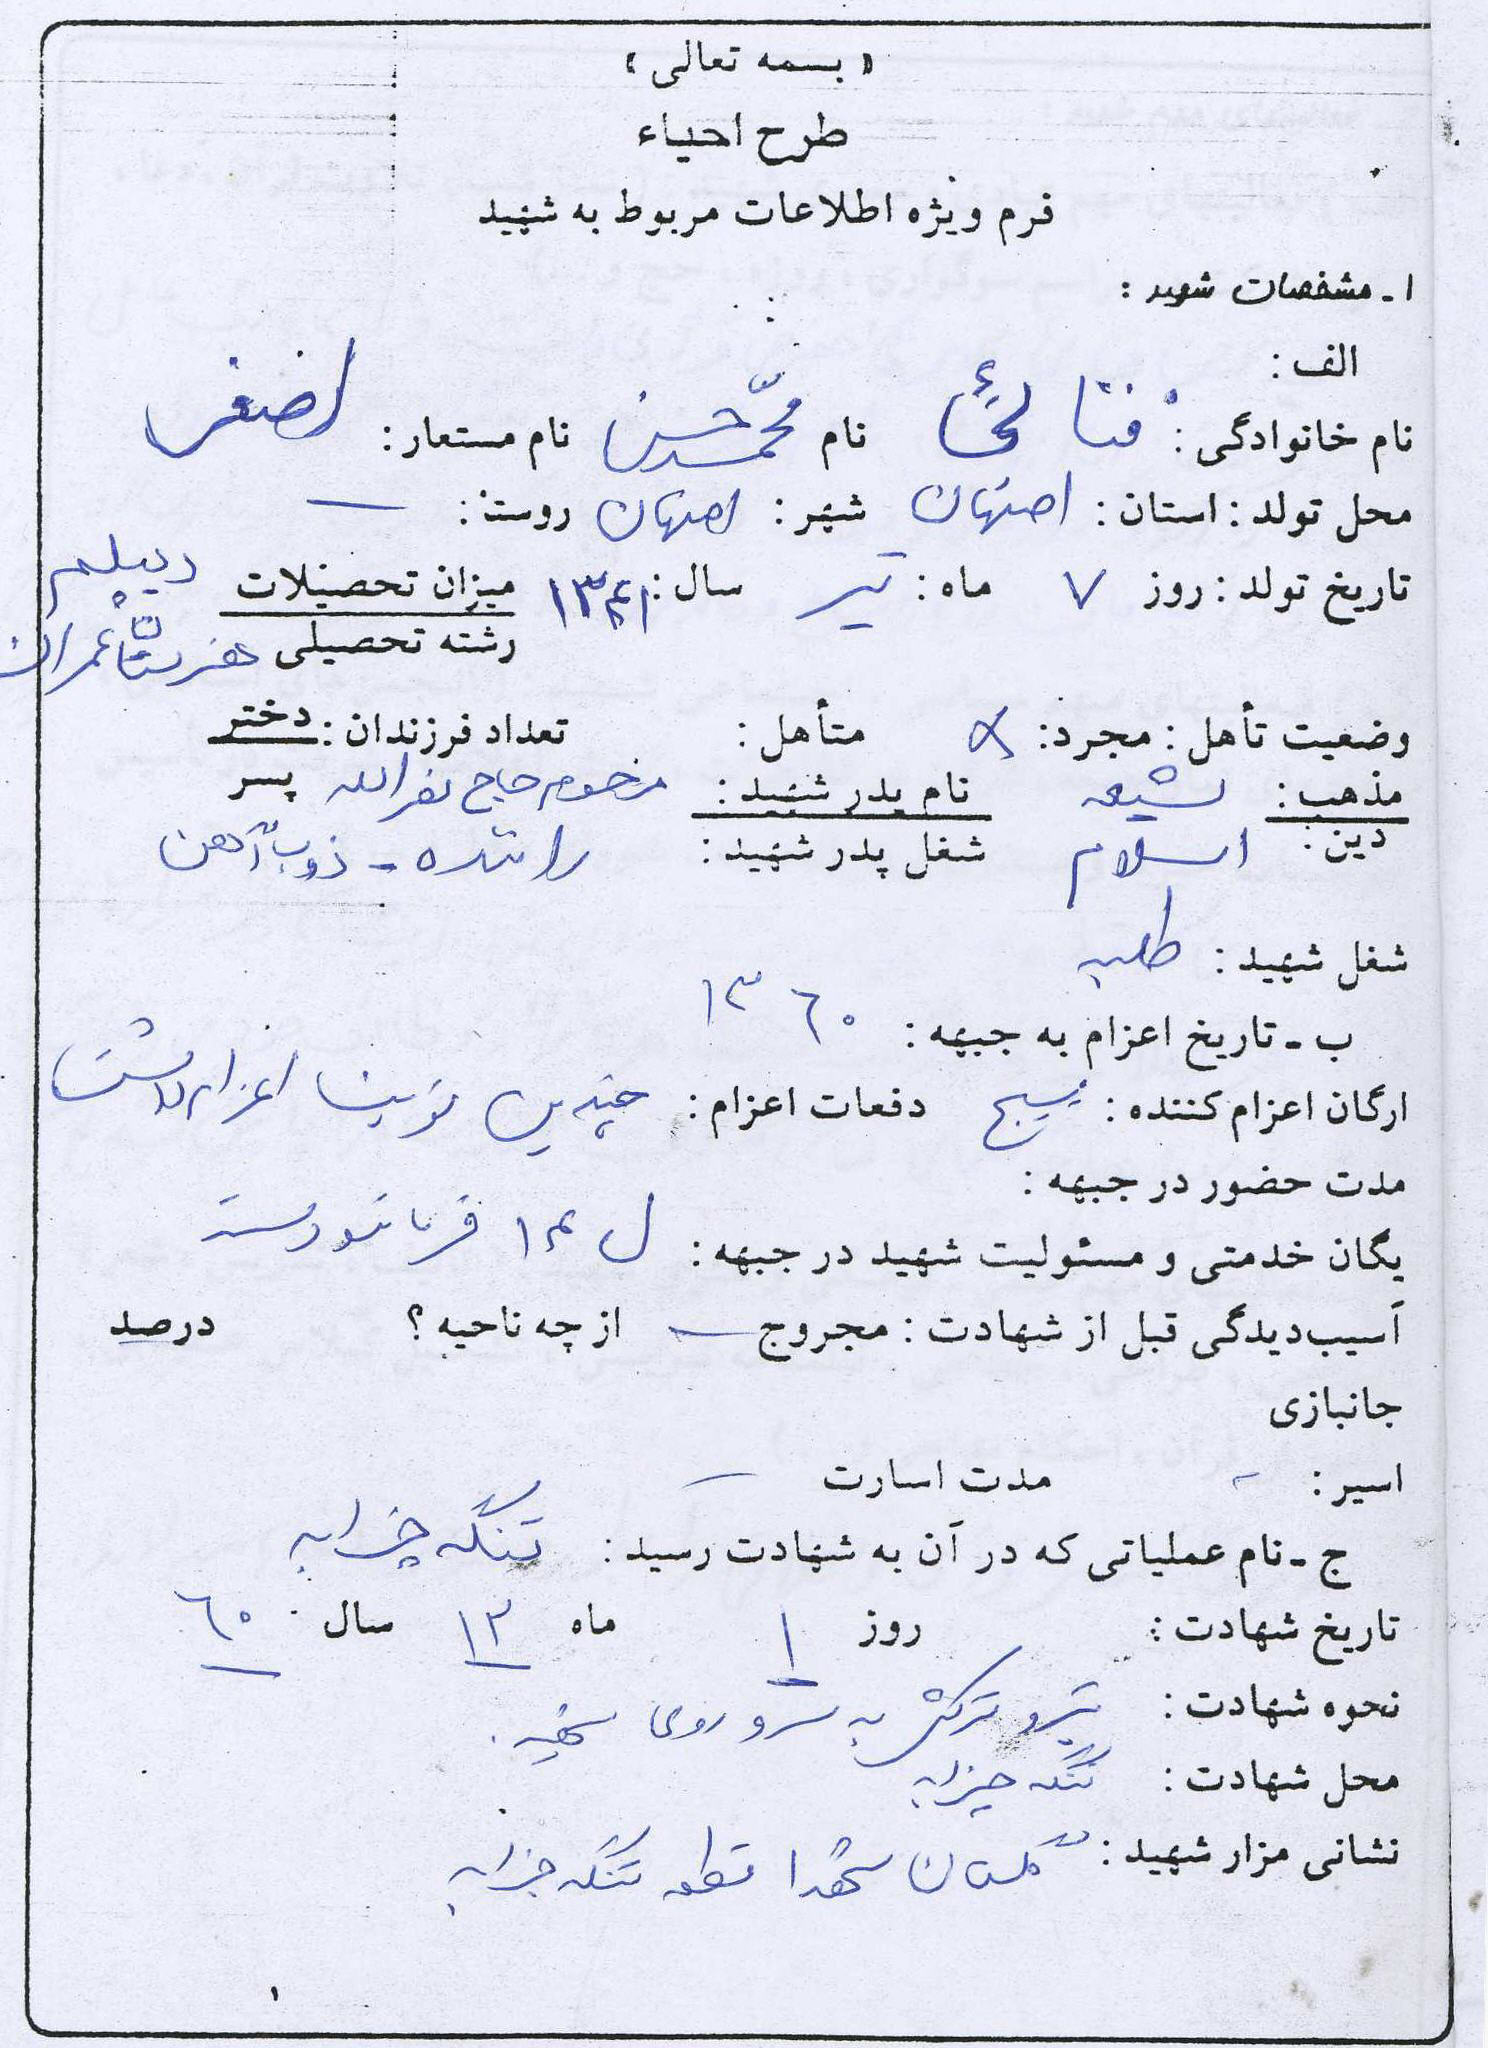 « بسمه تعالی »
طرح احیاء
فرم ویژه اطلاعات مربوط به شهید
۱ـ مشخصات شهید :
الف :
نام خانوادگی : نام محمدحسن نام مستعار : اصغر
محل تولد : استان : اصفهان شهر : اصفهان روستا : —
تاریخ تولد : روز ۷ ماه : تیر سال : ۱۳۴۱ میزان تحصیلات دیپلم
رشته تحصیلی هنرستان عمران
وضعیت تأهل : مجرد : متأهل : تعداد فرزندان : دختر
مذهب : شیعه نام پدر شهید : مرحوم حاج نصرالله پسر
دین : اسلام شغل پدر شهید : راننده - ذوب آهن
شغل شهید : طلبه
ب ـ تاریخ اعزام به جبهه : ۱۳۶۰
ارگان اعزام کننده : بسیج دفعات اعزام : چندین نوبت اعزام داشت
مدت حضور در جبهه :
یگان خدمتی و مسئولیت شهید در جبهه : ل ۱۴ فرمانده دسته
آسیب‌دیدگی قبل از شهادت : مجروح — از چه ناحیه ؟ درصد
جانبازی
اسیر : - مدت اسارت —
ج ـ نام عملیاتی که در آن به شهادت رسید : تنگه چزابه
تاریخ شهادت : روز ۱ ماه ۱۲ سال : ۶۰
نحوه شهادت : تیر و ترکش به سر و روی سینه .
محل شهادت : تنگه چزابه
نشانی مزار شهید : گلستان شهدا قطعه تنگه چزابه
۱